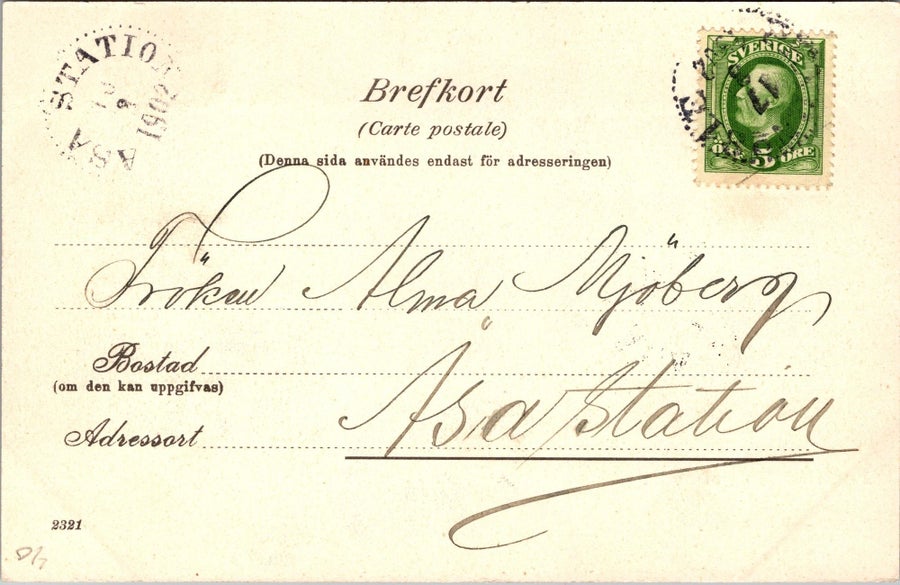 STATION
ÅSA
1902
SVERIGE
17
5
ÖRE
Brefkort
(Carte postale)
(Denna sida användes endast för adresseringen)
Fröken Alma Mjöberg
Bostad
(om den kan uppgifvas)
Åsa station
Adressort
2321